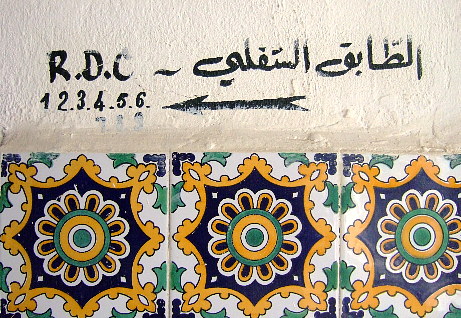 R.D.C ~ الطّابق السّفلي
1 2.3.4.5.6.